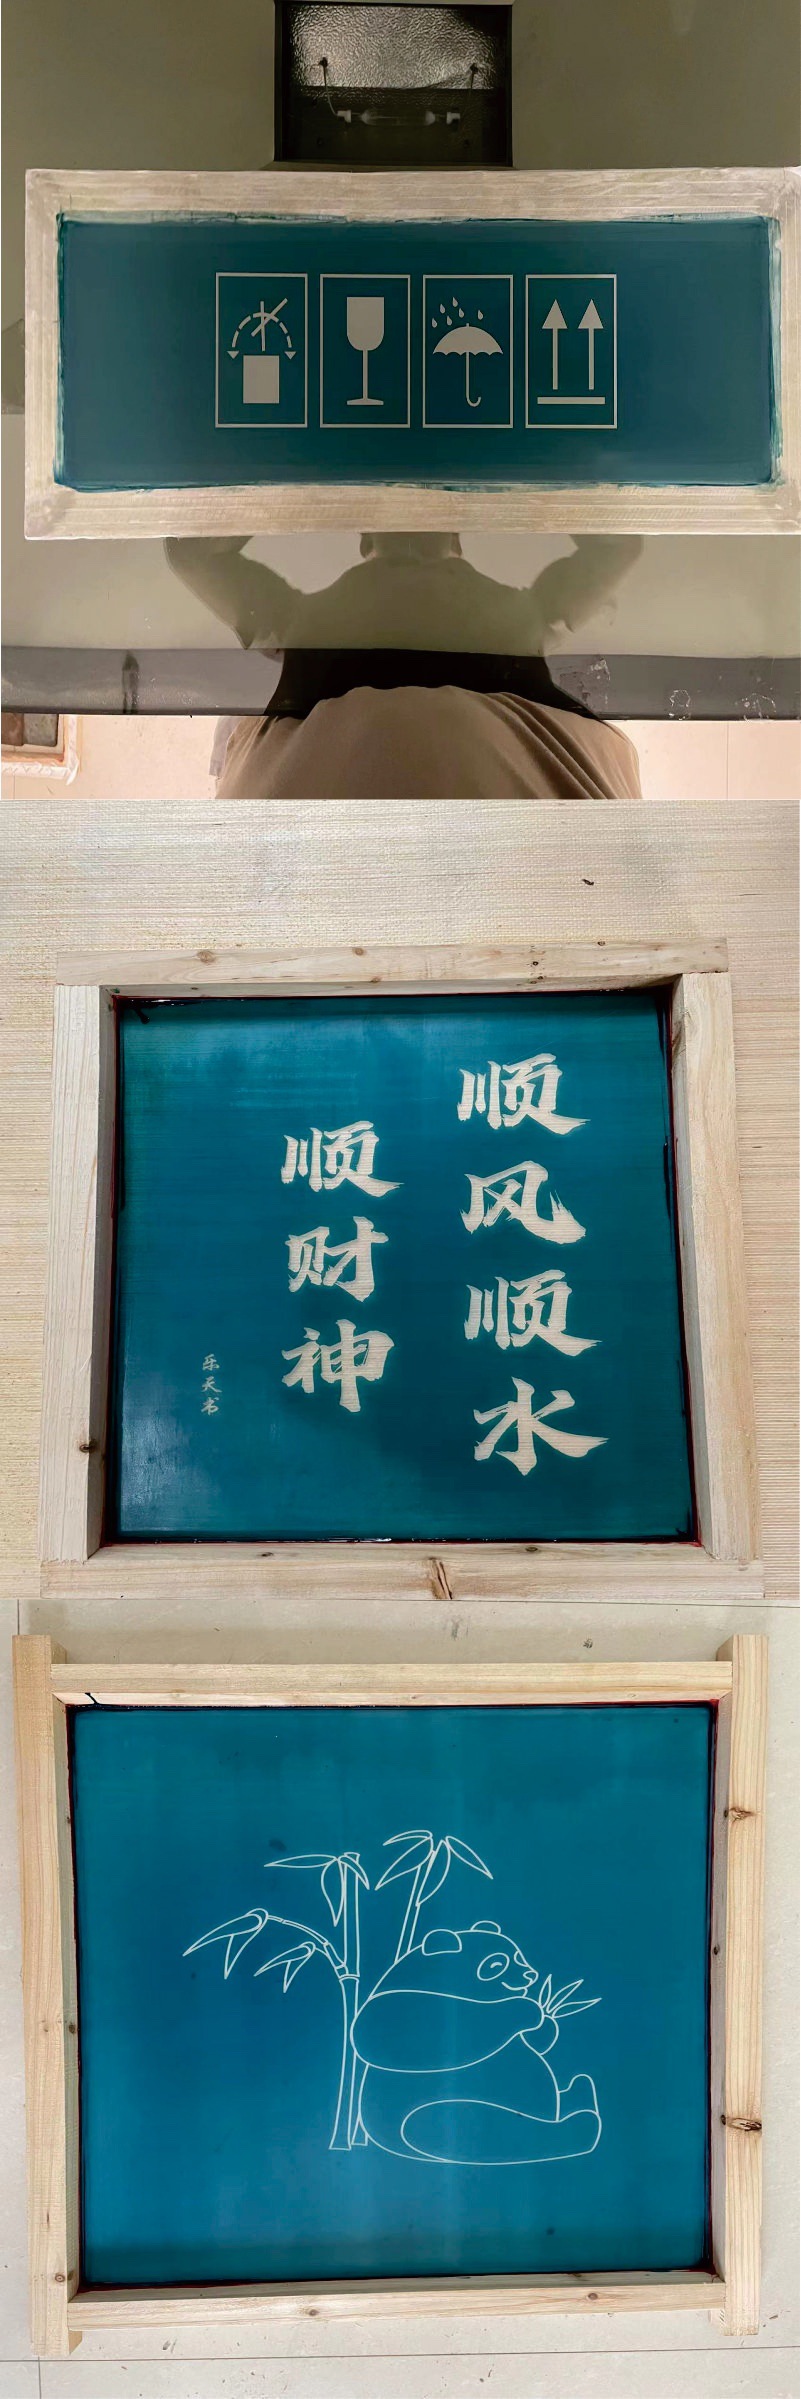 顺风顺水
顺财神
乐天书